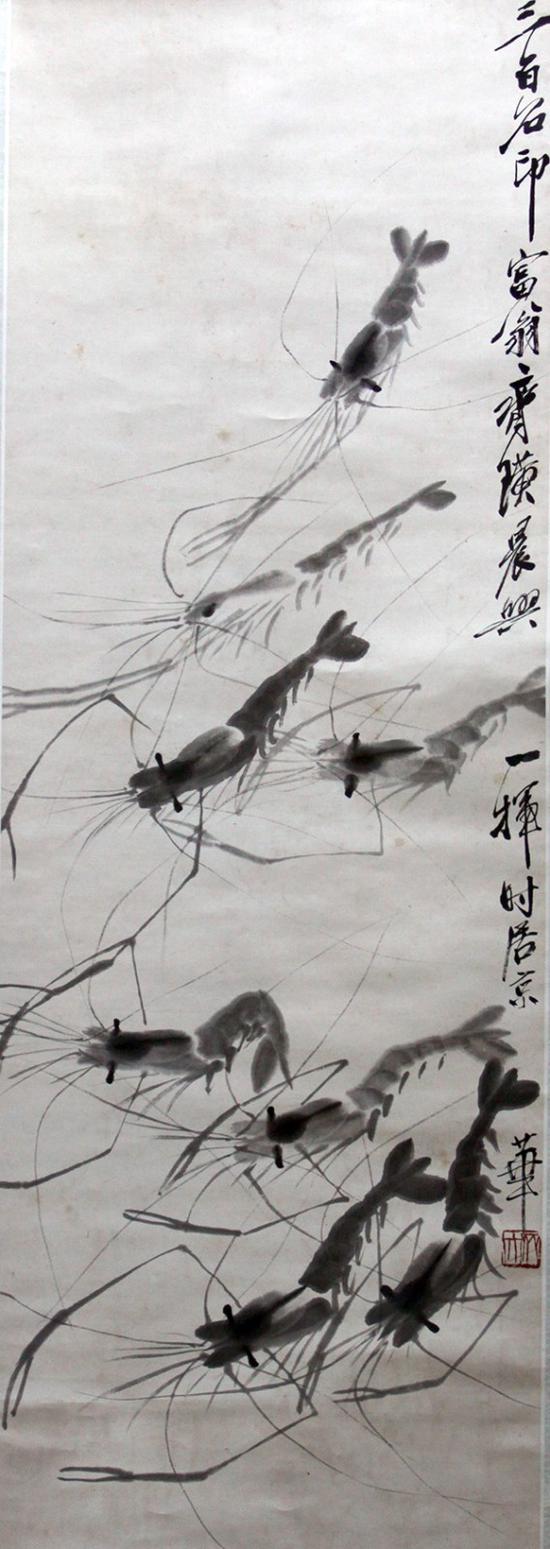 三百石印富翁齊璜晨興一揮时居京華